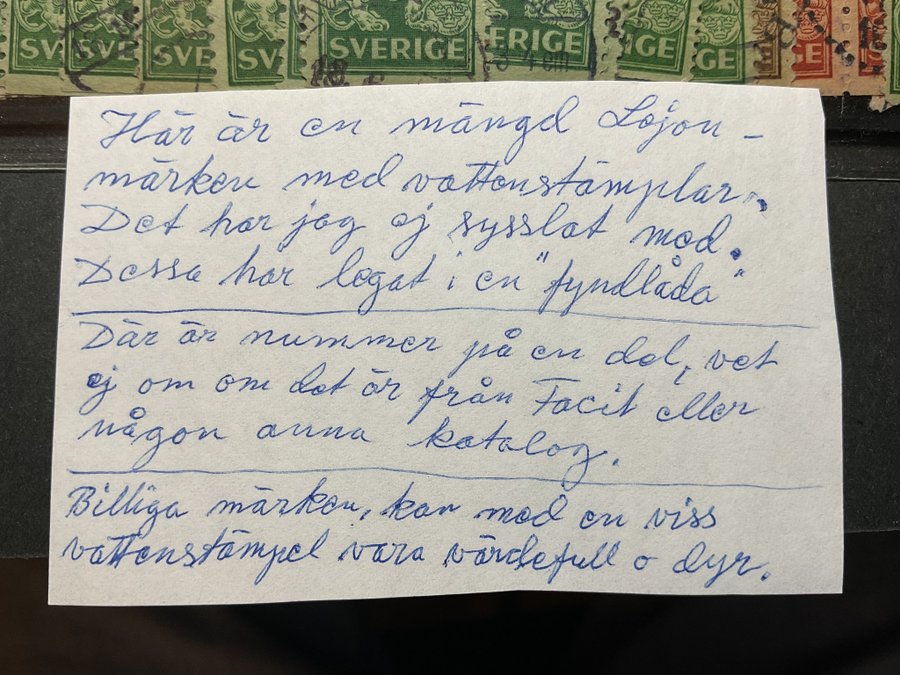 SVE SVE SVE SV SVERIGE ERIGE GE GE GE
Här är en mängd Lejon-
märken med vattenstämplar.
Det har jag ej sysslat med.
Dessa har legat i en "fyndlåda"
Där är nummer på en del, vet
ej om om det är från Facit eller
någon anna katalog.
Billiga märken, kan med en viss
vattenstämpel vara värdefull o dyr.